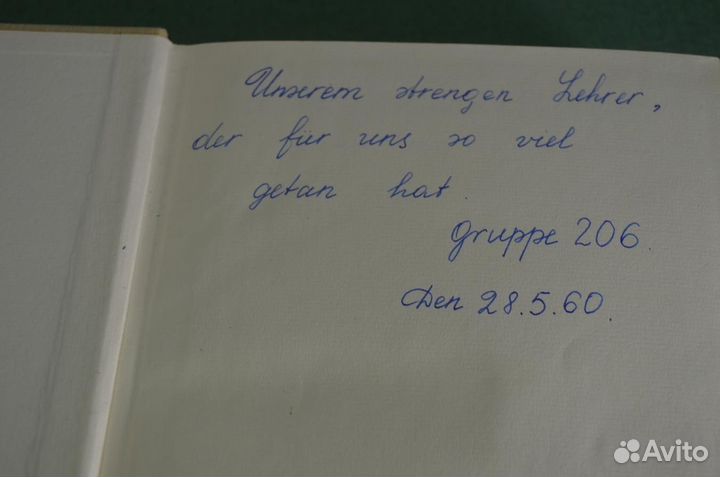 Unserem strengen Lehrer,
der für uns so viel
getan hat.
Gruppe 206.
Den 28.5.60.
Avito